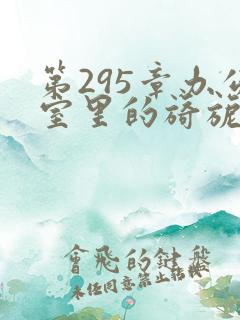 第295章办公
室里的旖旎
会飛的鍵盤
未经同意禁止转载